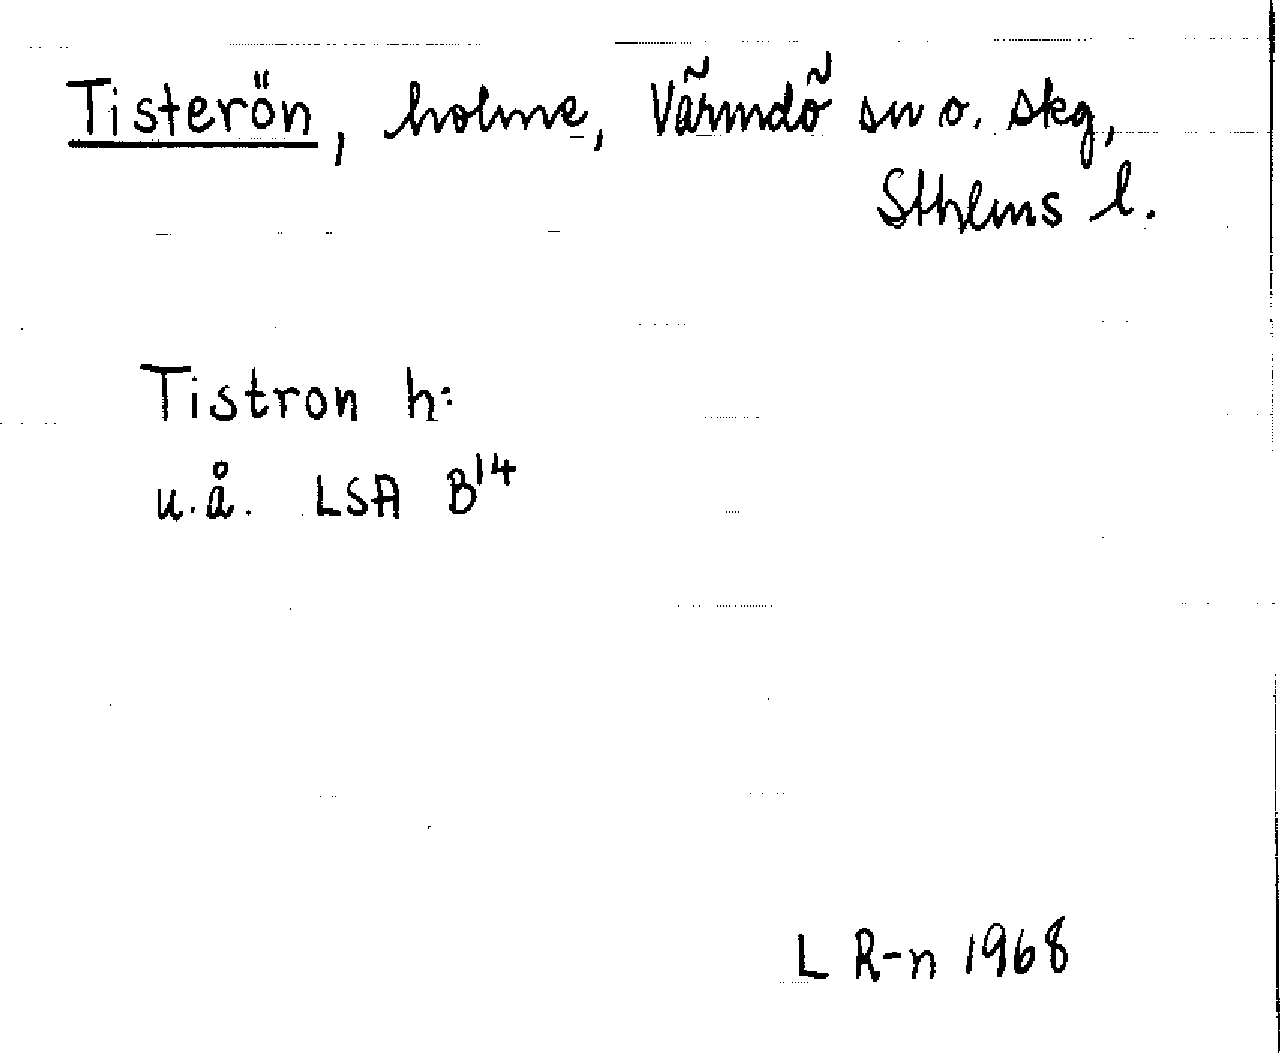 Tisterön, holme, Värmdö sn o. skg,
Sthlms l.
Tistron h:
u.å. LSA B14
L R-n 1968